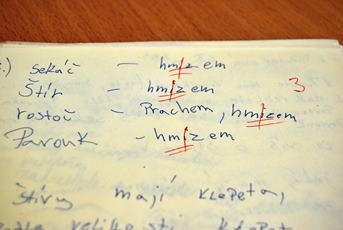 .) sekáč – hmizem
Štír – hmizem 3
rostoč – Prachem, hmizem
Parouk – hmizem
štíry mají klepeta,
velikosti klepet